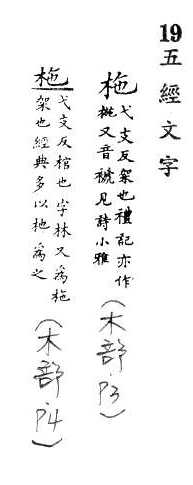 19 五經文字
柂
弋支反架也禮記亦作
又音褫見詩小雅
(木部.P3)
柂
弋支反棺也字林又為柂
架也經典多以杝為之
(木部.P4)